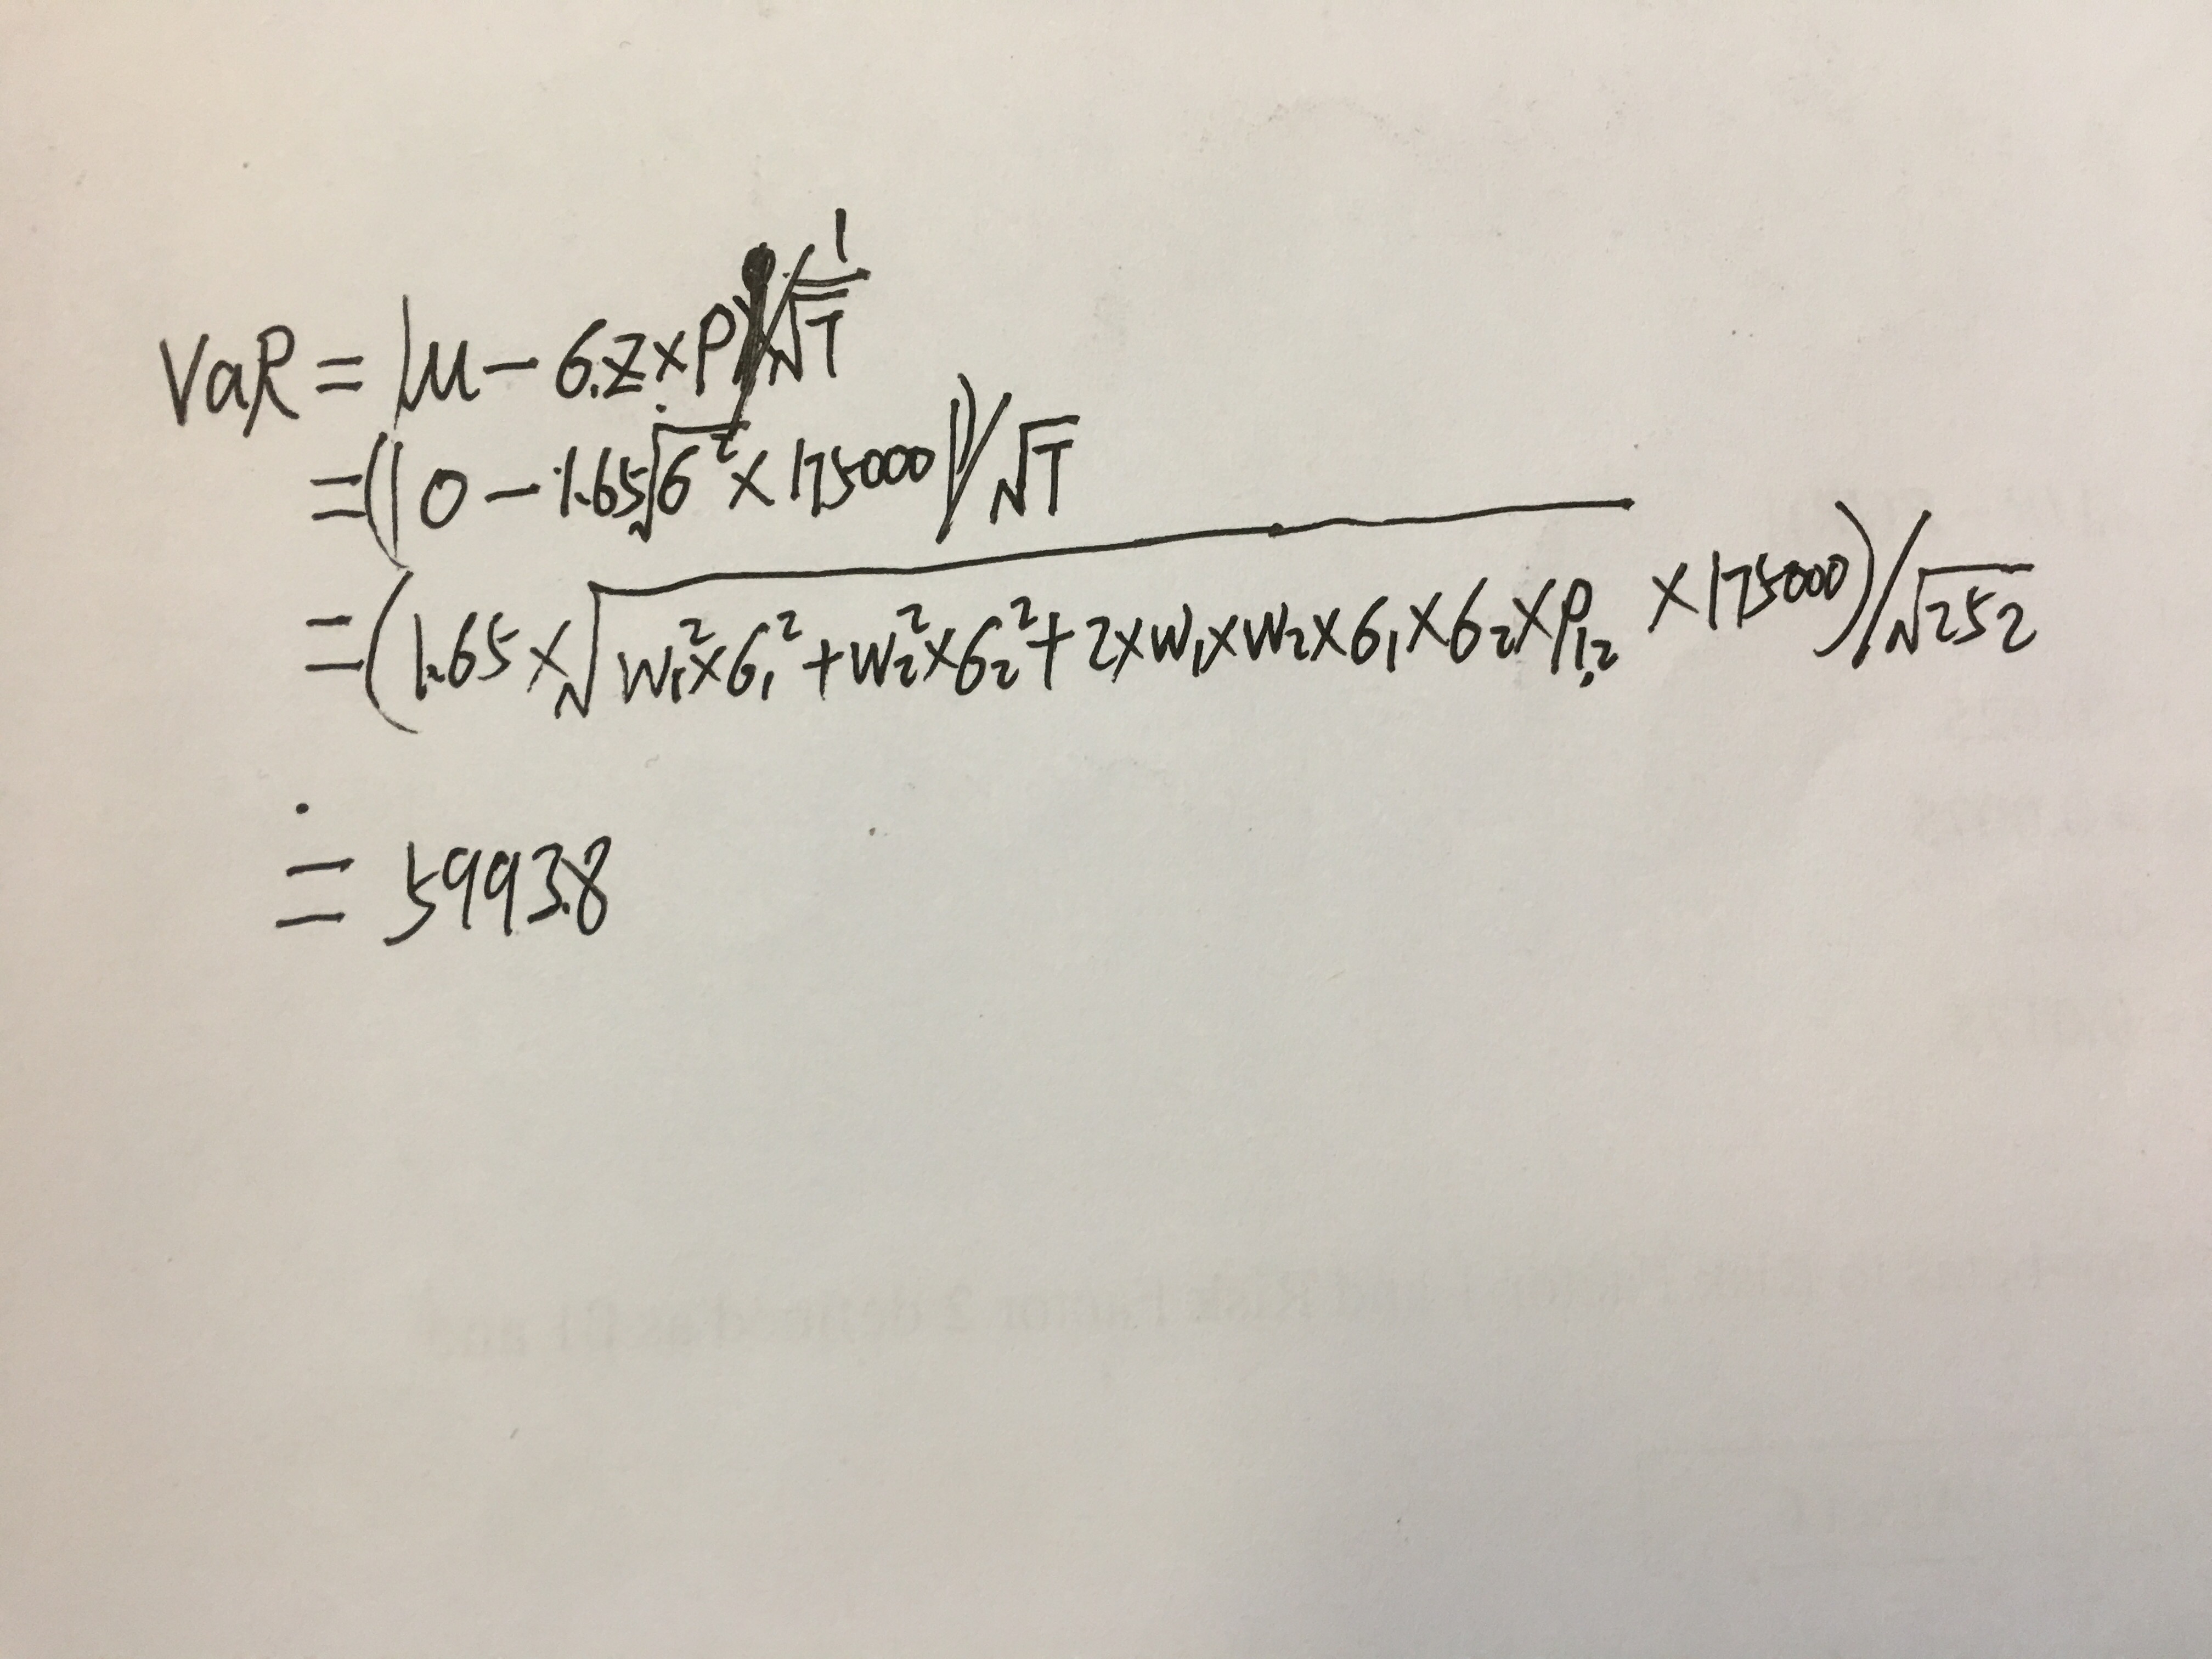 VaR = |μ - σ.z×P|/√T 1
=(|0 - 1.65√σ²×175000|)/√T
=(1.65×√w₁²×σ₁²+w₂²×σ₂²+2×w₁×w₂×σ₁×σ₂×ρ₁.₂ ×175000)/√252
= 5993.8